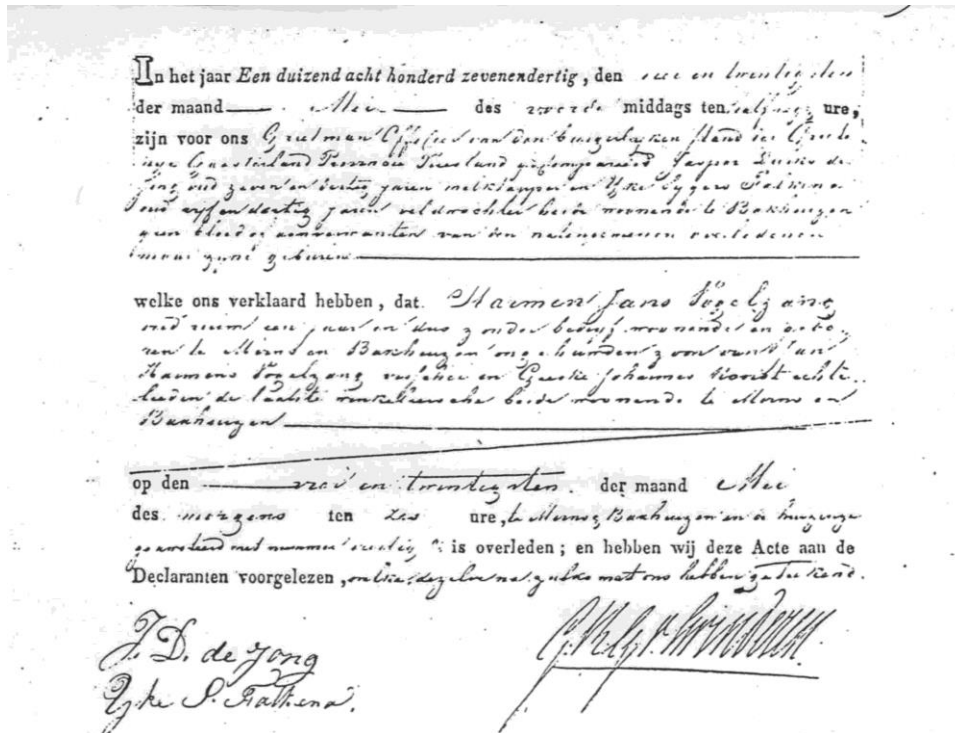 In het jaar Een duizend acht honderd zevenendertig, den en twentigsten
der maand Mei des voorde middags ten ure,
zijn voor ons Grietman Officier van den burgerlyken stand der Griete
nye Gaasterland Provincie Friesland gecompareerd Jasper de
Jong oud zeven en dertig jaren en Ypke Falkena
oud vyf en dertig jaren veldwachter beide woonende te Bakhuyzen
geen bloed of aanverwanten van den overledenen
maar zyne geburen
welke ons verklaard hebben, dat Harmen Jans Vogelzang
oud ruim een jaar en dus zonder bedryf woonende en gebo
ren te Mirns en Bakhuyzen zoon van Jan
Harmens Vogelzang en Geeske Johannes echte
lieden de laatste beide woonende te Mirns en
Bakhuyzen
op den en twentigsten der maand Mei
des morgens ten zes ure, te Mirns Bakhuyzen en de huizinge
gequoteerd met nummer is overleden; en hebben wij deze Acte aan de
Declaranten voorgelezen, welke dezelve na zulks met ons hebben geteekend.
J. D. de Jong
Ypke S. Falkena.